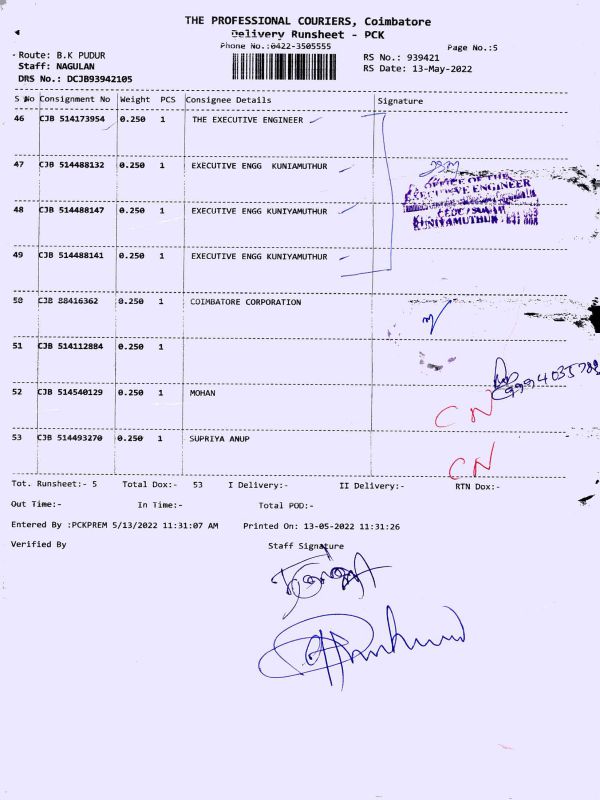 THE PROFESSIONAL COURIERS, Coimbatore
Delivery Runsheet - PCK
Phone No.:0422-3505555
Page No.:5
Route: B.K PUDUR
RS No.: 939421
Staff: NAGULAN
RS Date: 13-May-2022
DRS No.: DCJB93942105
S No Consignment No Weight PCS Consignee Details Signature
46 CJB 514173954 0.250 1 THE EXECUTIVE ENGINEER
47 CJB 514488132 0.250 1 EXECUTIVE ENGG KUNIAMUTHUR
OFFICE OF THE
EXECUTIVE ENGINEER
48 CJB 514488147 0.250 1 EXECUTIVE ENGG KUNIYAMUTHUR
KUNIYAMUTHUR - 641 008
49 CJB 514488141 0.250 1 EXECUTIVE ENGG KUNIYAMUTHUR
50 CJB 88416362 0.250 1 COIMBATORE CORPORATION
51 CJB 514112884 0.250 1
52 CJB 514540129 0.250 1 MOHAN
CN
53 CJB 514493270 0.250 1 SUPRIYA ANUP
CN
Tot. Runsheet:- 5 Total Dox:- 53 I Delivery:- II Delivery:- RTN Dox:-
Out Time:- In Time:- Total POD:-
Entered By :PCKPREM 5/13/2022 11:31:07 AM Printed On: 13-05-2022 11:31:26
Verified By Staff Signature